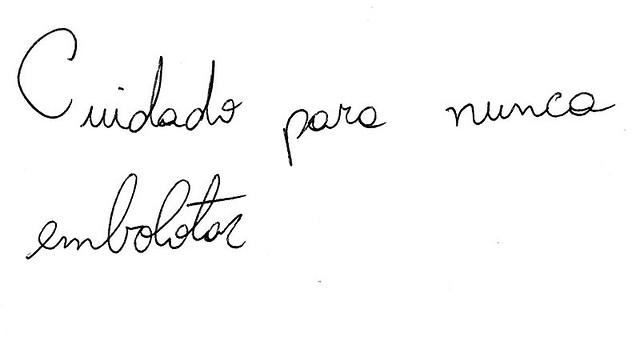 Cuidado para nunca
embolotar